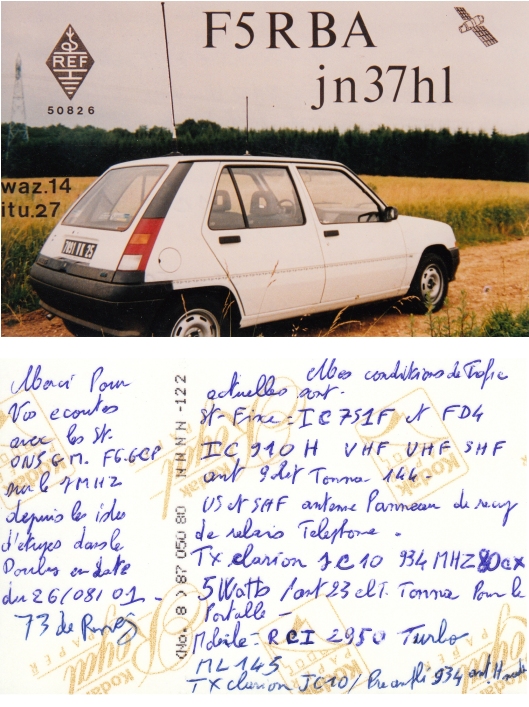 F5RBA
jn37hl
REF
50826
waz.14
itu.27
Merci Pour
Vos ecoutes
avec les St.
sur le 7MHZ
depuis les isles
d'étuyes dans le
Doubs en date
du 26/08/01-
73 de
<No. 8 >87 050 80 N N N N -122
Mes conditions de Trafic
actuelles sont.
St Fixe = IC 751F et FD4
IC 910 H VHF UHF SHF
ant 9 let Tonna 144-
US et SHF antenne Panneau de recup
de relais Telephone.
TX clarion JC10 934 MHZ 80cx
5Watts /ant 23 elt. Tonna Pour le
Portable-
Mobile = RCI 2950 Turbo
ML 145
TX clarion JC10/ Preampli 934 ant
Kodak
Royal
PAPER